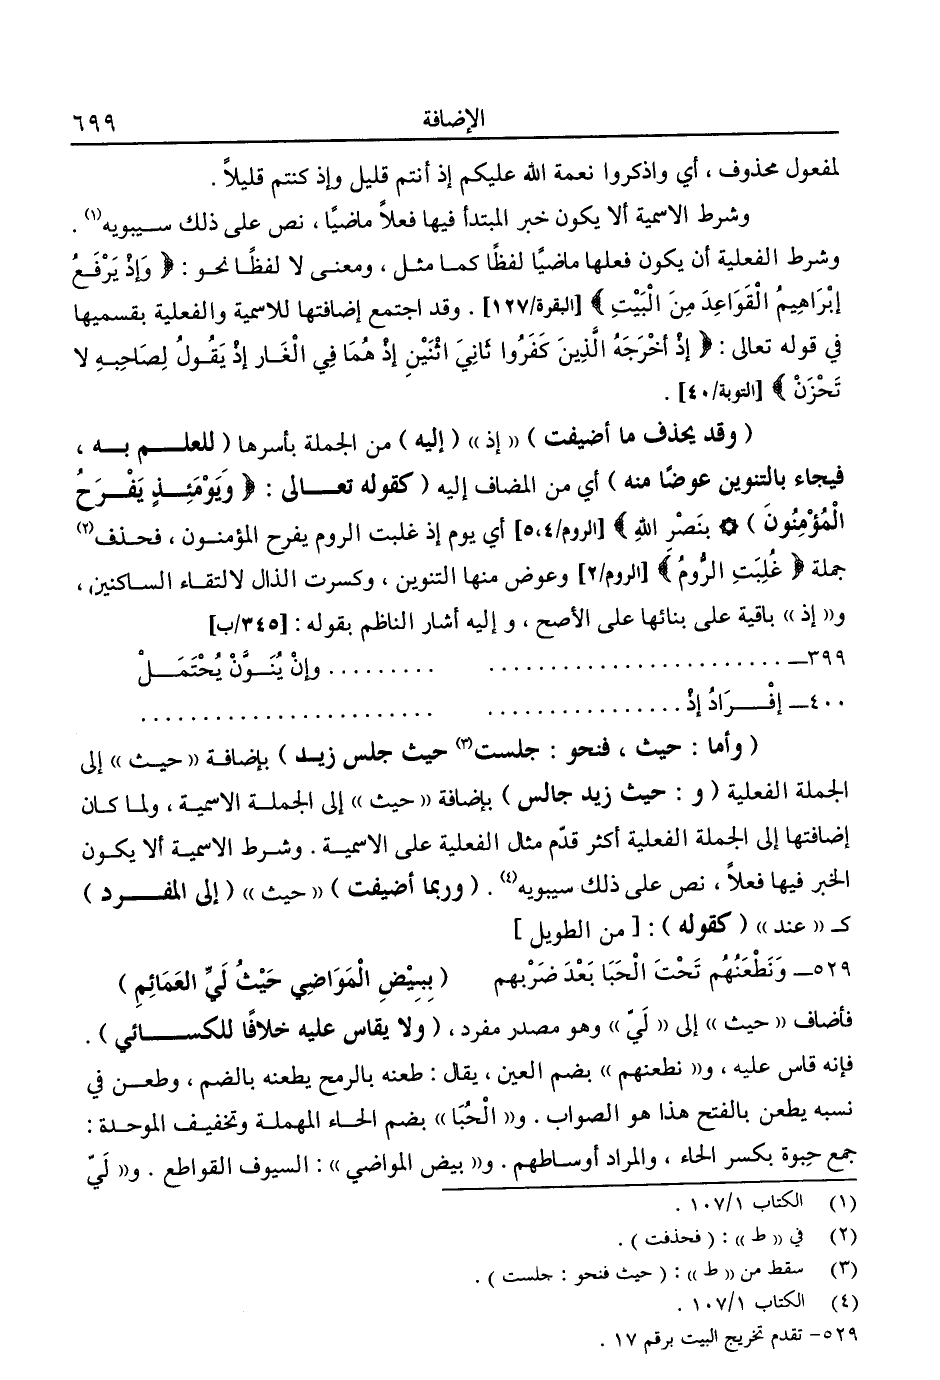 الإضافة ٦٩٩
لمفعول محذوف ، أي واذكروا نعمة الله عليكم إذ أنتم قليل وإذ كنتم قليلاً .
وشرط الاسمية ألا يكون خبر المبتدأ فيها فعلاً ماضيًا ، نص على ذلك سيبويه(١) .
وشرط الفعلية أن يكون فعلها ماضيًا لفظًا كما مثل ، ومعنى لا لفظًا نحو : ﴿ وَإِذْ يَرْفَعُ
إِبْرَاهِيمُ الْقَوَاعِدَ مِنَ الْبَيْتِ ﴾ [البقرة/١٢٧] . وقد اجتمع إضافتها للاسمية والفعلية بقسميها
في قوله تعالى : ﴿ إِذْ أَخْرَجَهُ الَّذِينَ كَفَرُوا ثَانِيَ اثْنَيْنِ إِذْ هُمَا فِي الْغَارِ إِذْ يَقُولُ لِصَاحِبِهِ لا
تَحْزَنْ ﴾ [التوبة/٤٠] .
( وقد يحذف ما أضيفت ) « إذ » ( إليه ) من الجملة بأسرها ( للعلم به ،
فيجاء بالتنوين عوضًا منه ) أي من المضاف إليه ( كقوله تعالى : ﴿ وَيَوْمَئِذٍ يَفْرَحُ
الْمُؤْمِنُونَ ) ۞ بِنَصْرِ اللهِ ﴾ [الروم/٥،٤] أي يوم إذ غلبت الروم يفرح المؤمنون ، فحذف(٢)
جملة ﴿ غُلِبَتِ الرُّومُ ﴾ [الروم/٢] وعوض منها التنوين ، وكسرت الذال لالتقاء الساكنين ،
و« إذ » باقية على بنائها على الأصح ، و إليه أشار الناظم بقوله : [٣٤٥/ب]
٣٩٩ـ ........................ ......... وإنْ يُنَوَّنْ يُحْتَمَلْ
٤٠٠ـ إِفْرَادُ إِذْ ................ ........................
( وأما : حيث ، فنحو : جلست(٣) حيث جلس زيد ) بإضافة « حيث » إلى
الجملة الفعلية ( و : حيث زيد جالس ) بإضافة « حيث » إلى الجملة الاسمية ، ولما كان
إضافتها إلى الجملة الفعلية أكثر قدّم مثال الفعلية على الاسمية . وشرط الاسمية ألا يكون
الخبر فيها فعلاً ، نص على ذلك سيبويه(٤) . ( وربما أضيفت ) « حيث » ( إلى المفرد )
كـ « عند » ( كقوله ) : [ من الطويل ]
٥٢٩ـ وَنَطْعَنُهُم تَحْتَ الْحَبَا بَعْدَ ضَرْبهم ( بِبِيْضِ الْمَوَاضِي حَيْثُ لَيِّ العَمَائِمِ )
فأضاف « حيث » إلى « لَيّ » وهو مصدر مفرد ، ( ولا يقاس عليه خلافًا للكسائي ) .
فإنه قاس عليه ، و« نطعنهم » بضم العين ، يقال : طعنه بالرمح يطعنه بالضم ، وطعن في
نسبه يطعن بالفتح هذا هو الصواب . و« الْحُبَا » بضم الحاء المهملة وتخفيف الموحدة :
جمع حِبوة بكسر الحاء ، والمراد أوساطهم . و« بيض المواضي » : السيوف القواطع . و« لَيّ
(١) الكتاب ١٠٧/١ .
(٢) في « ط » : ( فحذفت ) .
(٣) سقط من « ط » : ( حيث فنحو : جلست ) .
(٤) الكتاب ١٠٧/١ .
٥٢٩- تقدم تخريج البيت برقم ١٧ .